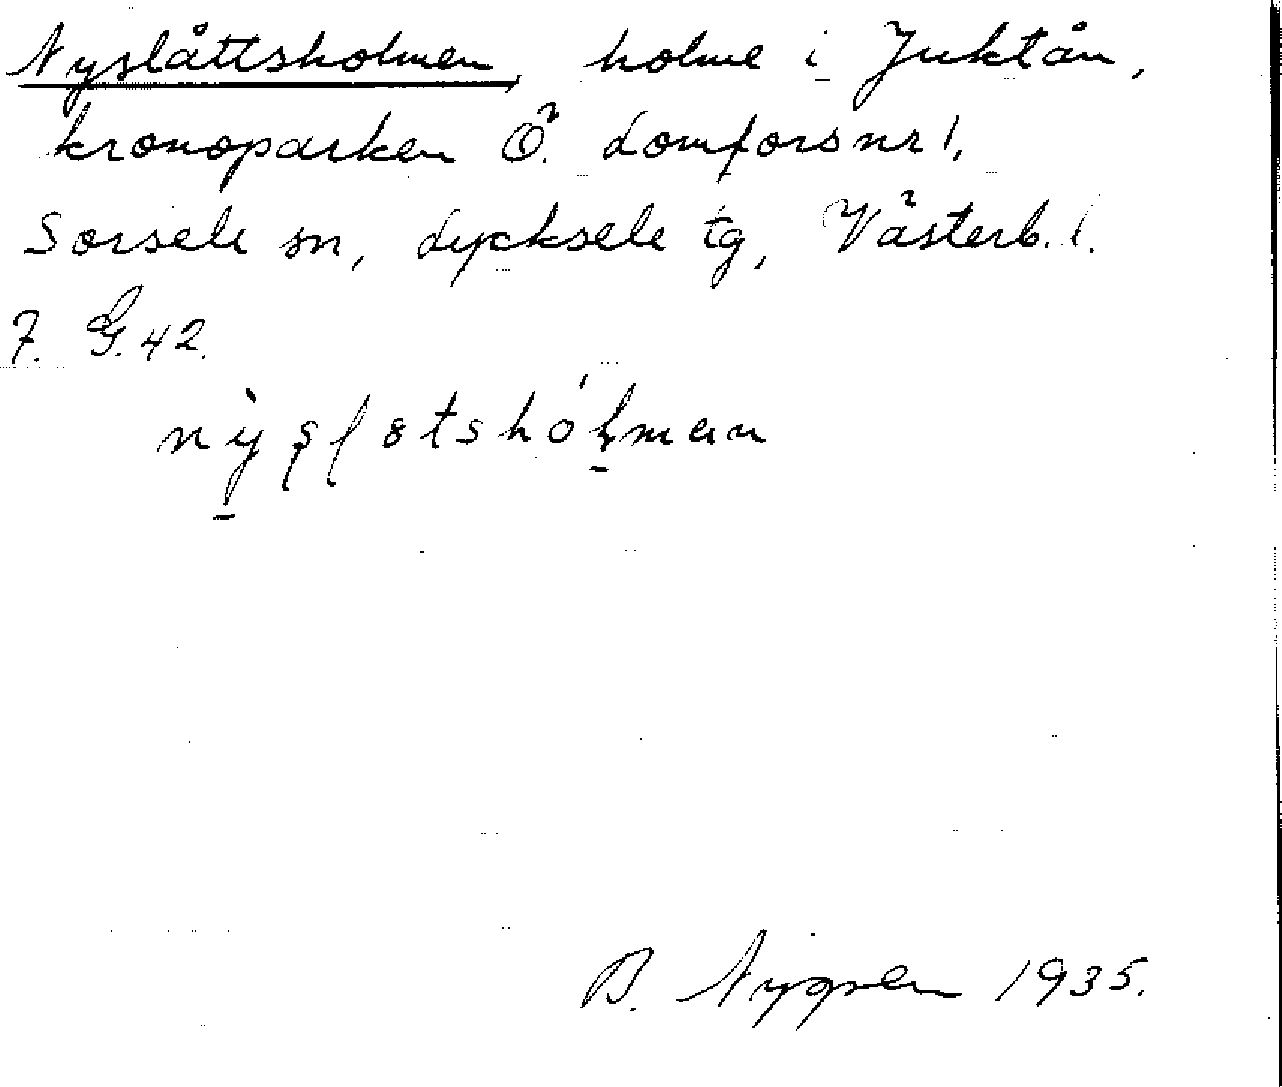 Nyslåttsholmen, holme i Juktån,
kronoparken Ö. Lomfors nr 1,
Sorsele sn, Lycksele tg, Västerb. l.
7. G. 42.
B. Nygren 1935.